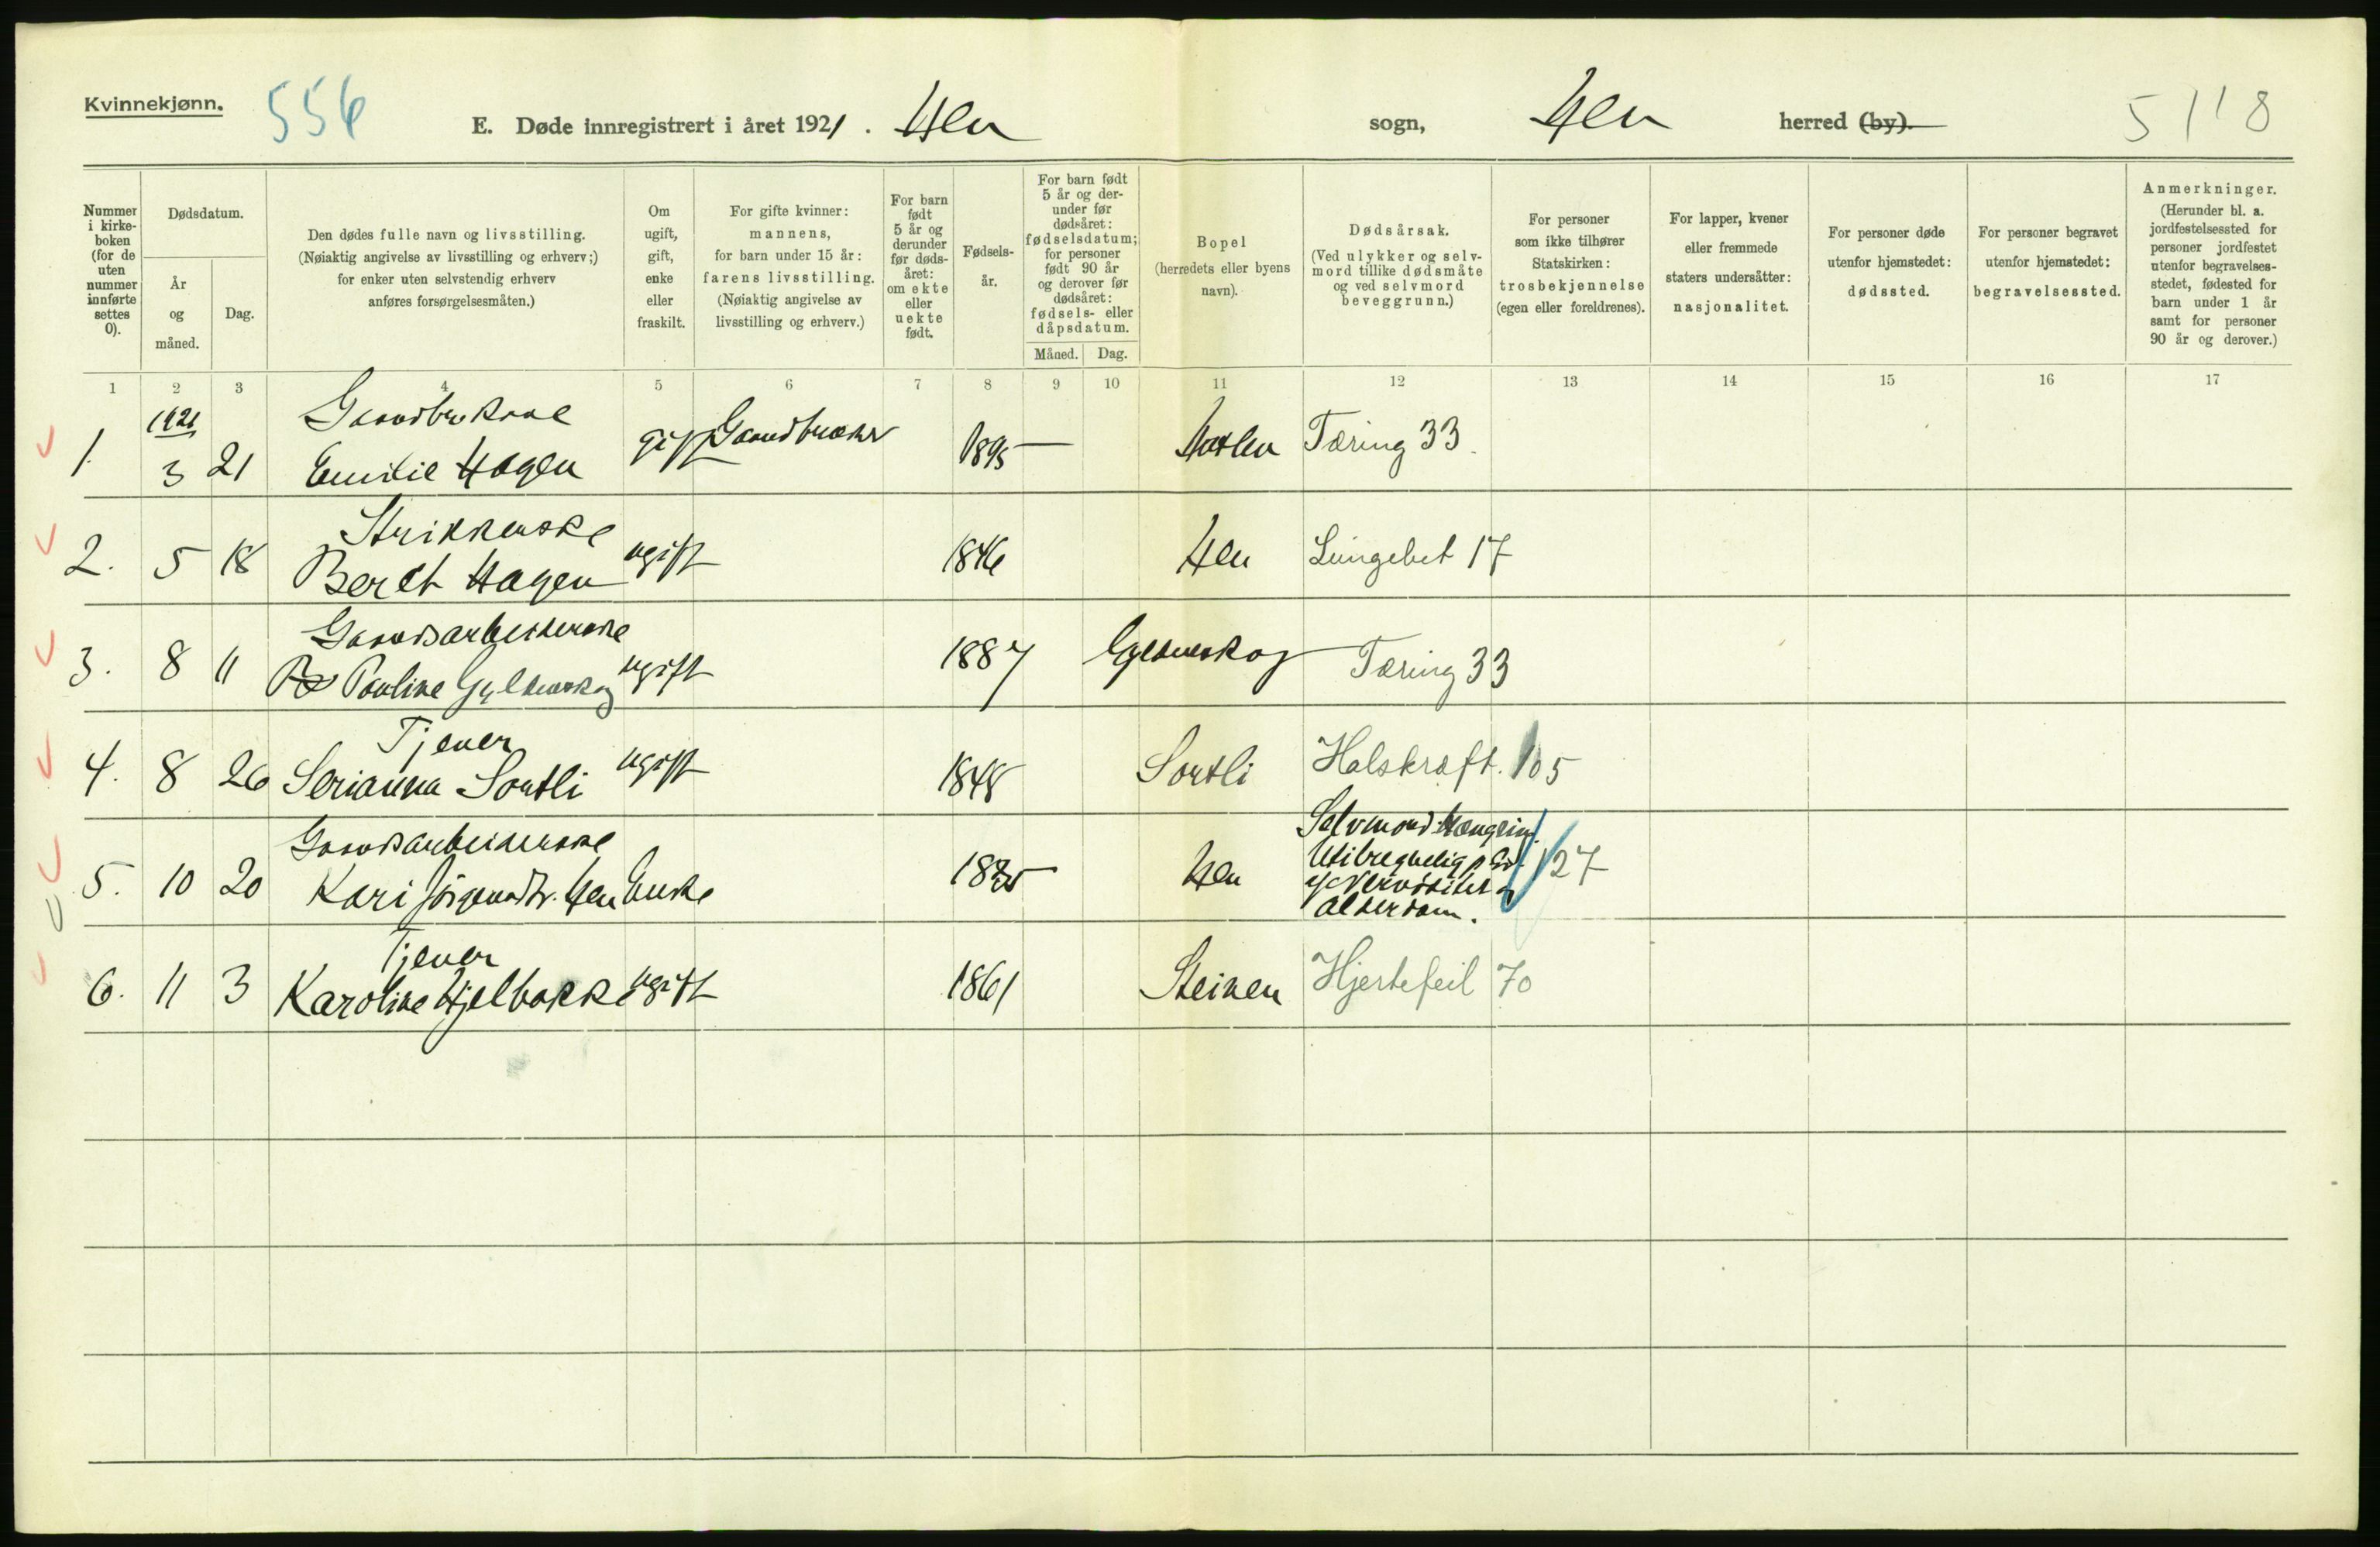 Kvinnekjønn.
556
E. Døde innregistrert i året 1921. Hen sogn, Hen herred (by).
5118
Nummer i kirke- boken (for de uten nummer innførte settes 0).
Dødsdatum.
År og måned.
Dag.
Den dødes fulle navn og livsstilling.
(Nøiaktig angivelse av livsstilling og erhverv;)
for enker uten selvstendig erhverv
anføres forsørgelsesmåten.)
Om ugift, gift, enke eller fraskilt.
For gifte kvinner:
mannens,
for barn under 15 år:
farens livsstilling.
(Nøiaktig angivelse av
livsstilling og erhverv.)
For barn født 5 år og derunder før døds- året: om ekte eller uekte født.
Fødsels- år.
For barn født 5 år og der- under før dødsåret: fødselsdatum; for personer født 90 år og derover før dødsåret: fødsels- eller dåpsdatum.
Måned. Dag.
Bopel
(herredets eller byens
navn).
Dødsårsak.
(Ved ulykker og selv-
mord tillike dødsmåte
og ved selvmord
beveggrunn.)
For personer
som ikke tilhører
Statskirken:
trosbekjennelse
(egen eller foreldrenes).
For lapper, kvener
eller fremmede
staters undersåtter:
nasjonalitet.
For personer døde
utenfor hjemstedet:
dødssted.
For personer begravet
utenfor hjemstedet:
begravelsessted.
Anmerkninger.
(Herunder bl. a.
jordfestelsessted for
personer jordfestet
utenfor begravelses-
stedet, fødested for
barn under 1 år
samt for personer
90 år og derover.)
1 2 3 4 5 6 7 8 9 10 11 12 13 14 15 16 17
1921
Gaardbr.kone
1. 3 21 Emilie Hagen gift Gaardbruker 1895 Tæring 33.
Strikkerske
2. 5 18 Beret Hagen ugift 1846 Hen Lungebet 17
Gaardsarbeiderske
3. 8 11 Pauline Gyldenskog ugift 1887 Gyldenskog Tæring 33
Tjener
4. 8 26 Serianna Sortli ugift 1848 Sortli Halskræft. 105
Gaardsarbeiderske
5. 10 20 Kari Jørgensdtr. Hen Enke Hen
Selvmord Hængning
Utilregnelig p. Gr.
af Nervøsitet
Alderdom.
127
Tjener
6. 11 3 Karoline Hjelbakk ugift 1861 Steinen Hjertefeil 70